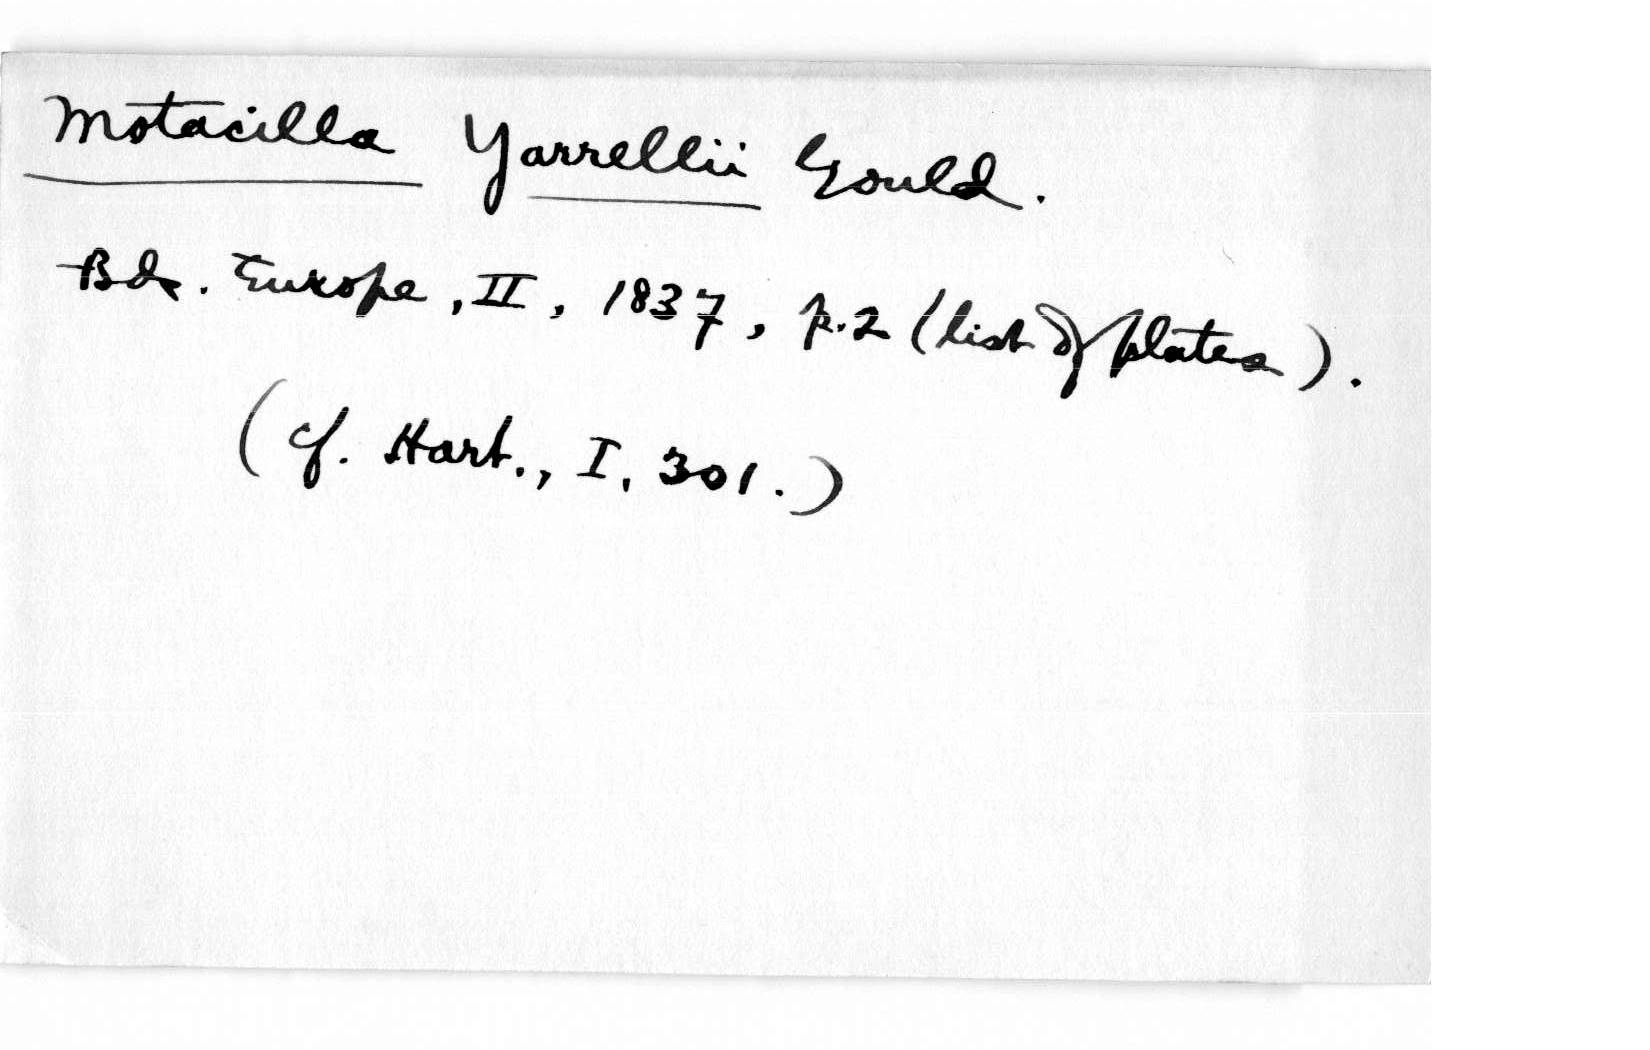 Motacilla Yarrellii Gould.
Bds. Europe, II, 1837, p.2 (list of plates).
(cf. Hart., I, 301.)